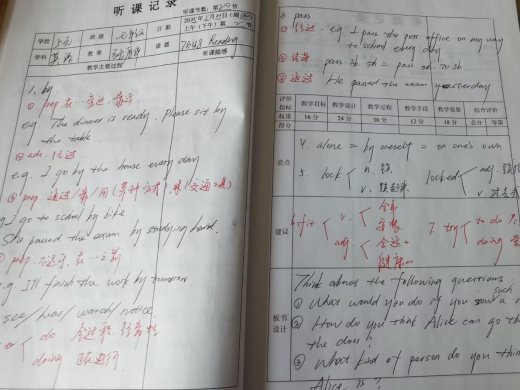 听课记录
听课节数：第20节
学校
班级 七年级
日期
2025年
上午（下午）第 节
学科 英语
教者
课题 7BU8 Reading
教学主要过程
听课随感
1. by
① prep. 在…旁边，靠近
e.g. The dinner is ready. Please sit by
the table
② adv. 经过
e.g. I go by the house every day
③ prep. 通过/靠/用（某种方式），乘（交通工具）
e.g. I go to school by bike
She passed the exam by studying hard.
④ prep. 不迟于，在…之前
e.g. I'll finish the work by tomorrow
see/hear/watch/notice
do
doing 正在进行
3. pass
① 经过 e.g. I pass the post office on my way
to school every day
② 传递 pass sb sth = pass sth. to sb.
③ 通过 He passed the exam yesterday
评价指标 教学目标 教学设计 教学过程 教学手段 教学效果 综合评价
权重 16分 24分 30分 12分 18分 总分 等第
得分
亮点
4. alone = by oneself = on one's own
5. lock n. 锁
v. 锁起来
locked adj.
v. 过去式
建议
6. fit v. 合身
adj. 合适的
健康的
7. try to do
doing
板书设计
Think about the following questions.
① What would you do if you saw a
such
② How do you think Alice can go th
the door?
③ What kind of person do you think
Alice is?